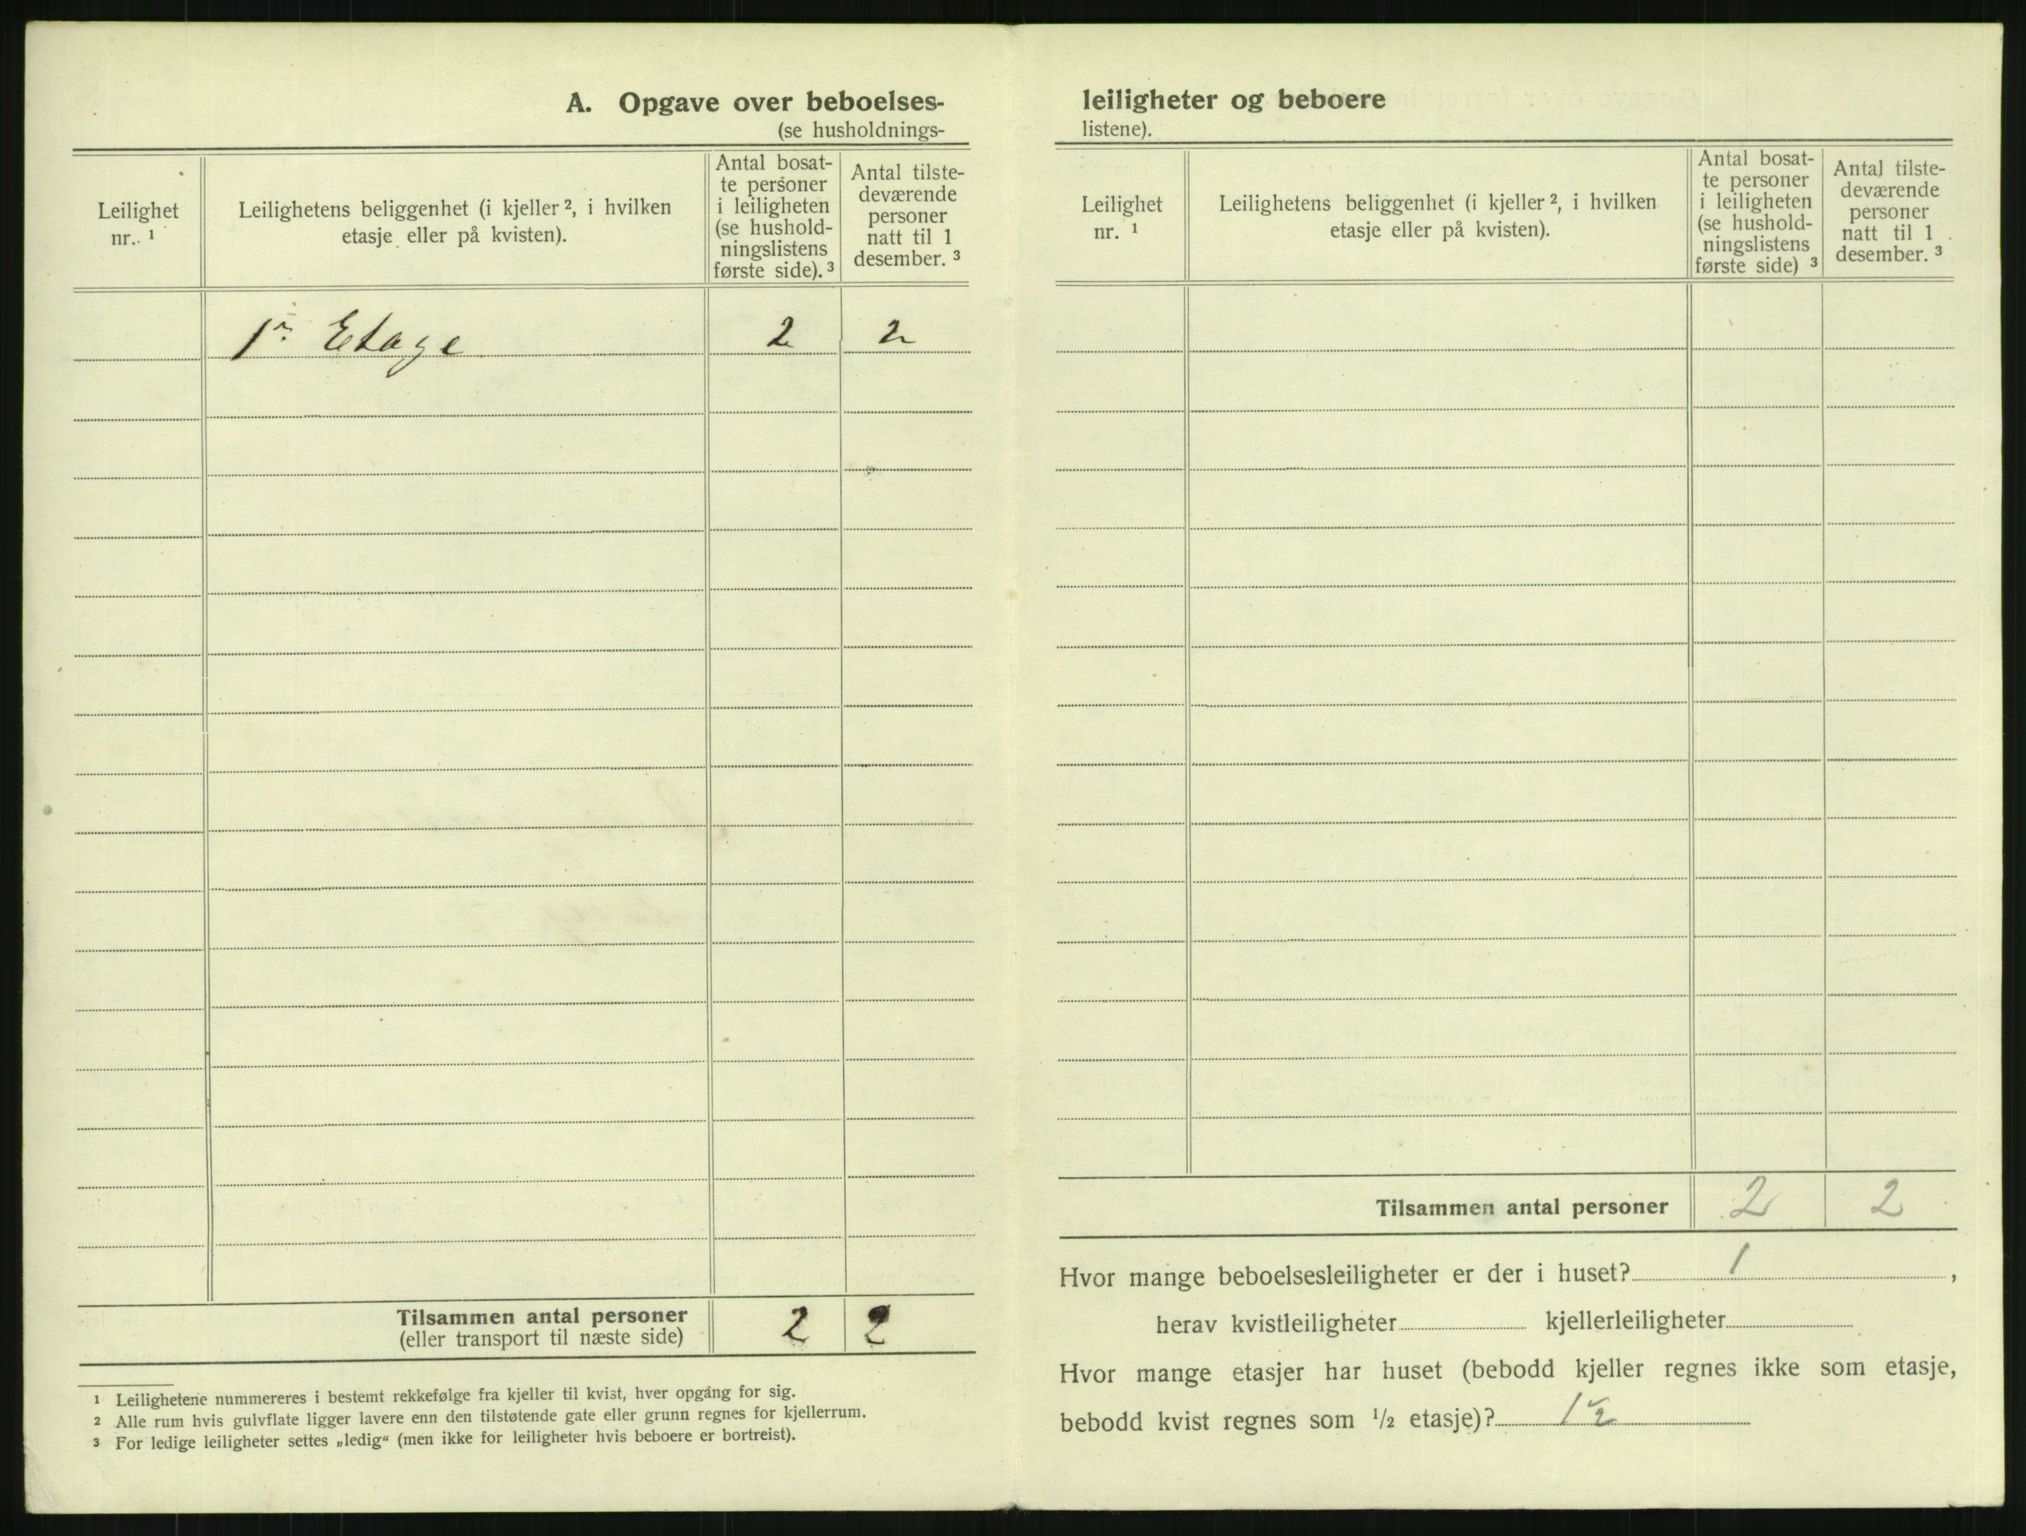 A. Opgave over beboelses-
(se husholdnings-
Leilighet
nr. ¹
Leilighetens beliggenhet (i kjeller ², i hvilken
etasje eller på kvisten).
Antal bosat-
te personer
i leiligheten
(se hushold-
ningslistens
første side). ³
Antal tilste-
deværende
personer
natt til 1
desember. ³
1ᵉ Etage 2 2
Tilsammen antal personer 2 2
(eller transport til næste side)
¹ Leilighetene nummereres i bestemt rekkefølge fra kjeller til kvist, hver opgang for sig.
² Alle rum hvis gulvflate ligger lavere enn den tilstøtende gate eller grunn regnes for kjellerrum.
³ For ledige leiligheter settes „ledig“ (men ikke for leiligheter hvis beboere er bortreist).
leiligheter og beboere
listene).
Leilighet
nr. ¹
Leilighetens beliggenhet (i kjeller ², i hvilken
etasje eller på kvisten).
Antal bosat-
te personer
i leiligheten
(se hushold-
ningslistens
første side) ³
Antal tilste-
deværende
personer
natt til 1
desember. ³
Tilsammen antal personer 2 2
Hvor mange beboelsesleiligheter er der i huset? 1,
herav kvistleiligheter kjellerleiligheter
Hvor mange etasjer har huset (bebodd kjeller regnes ikke som etasje,
bebodd kvist regnes som ½ etasje)? 1½